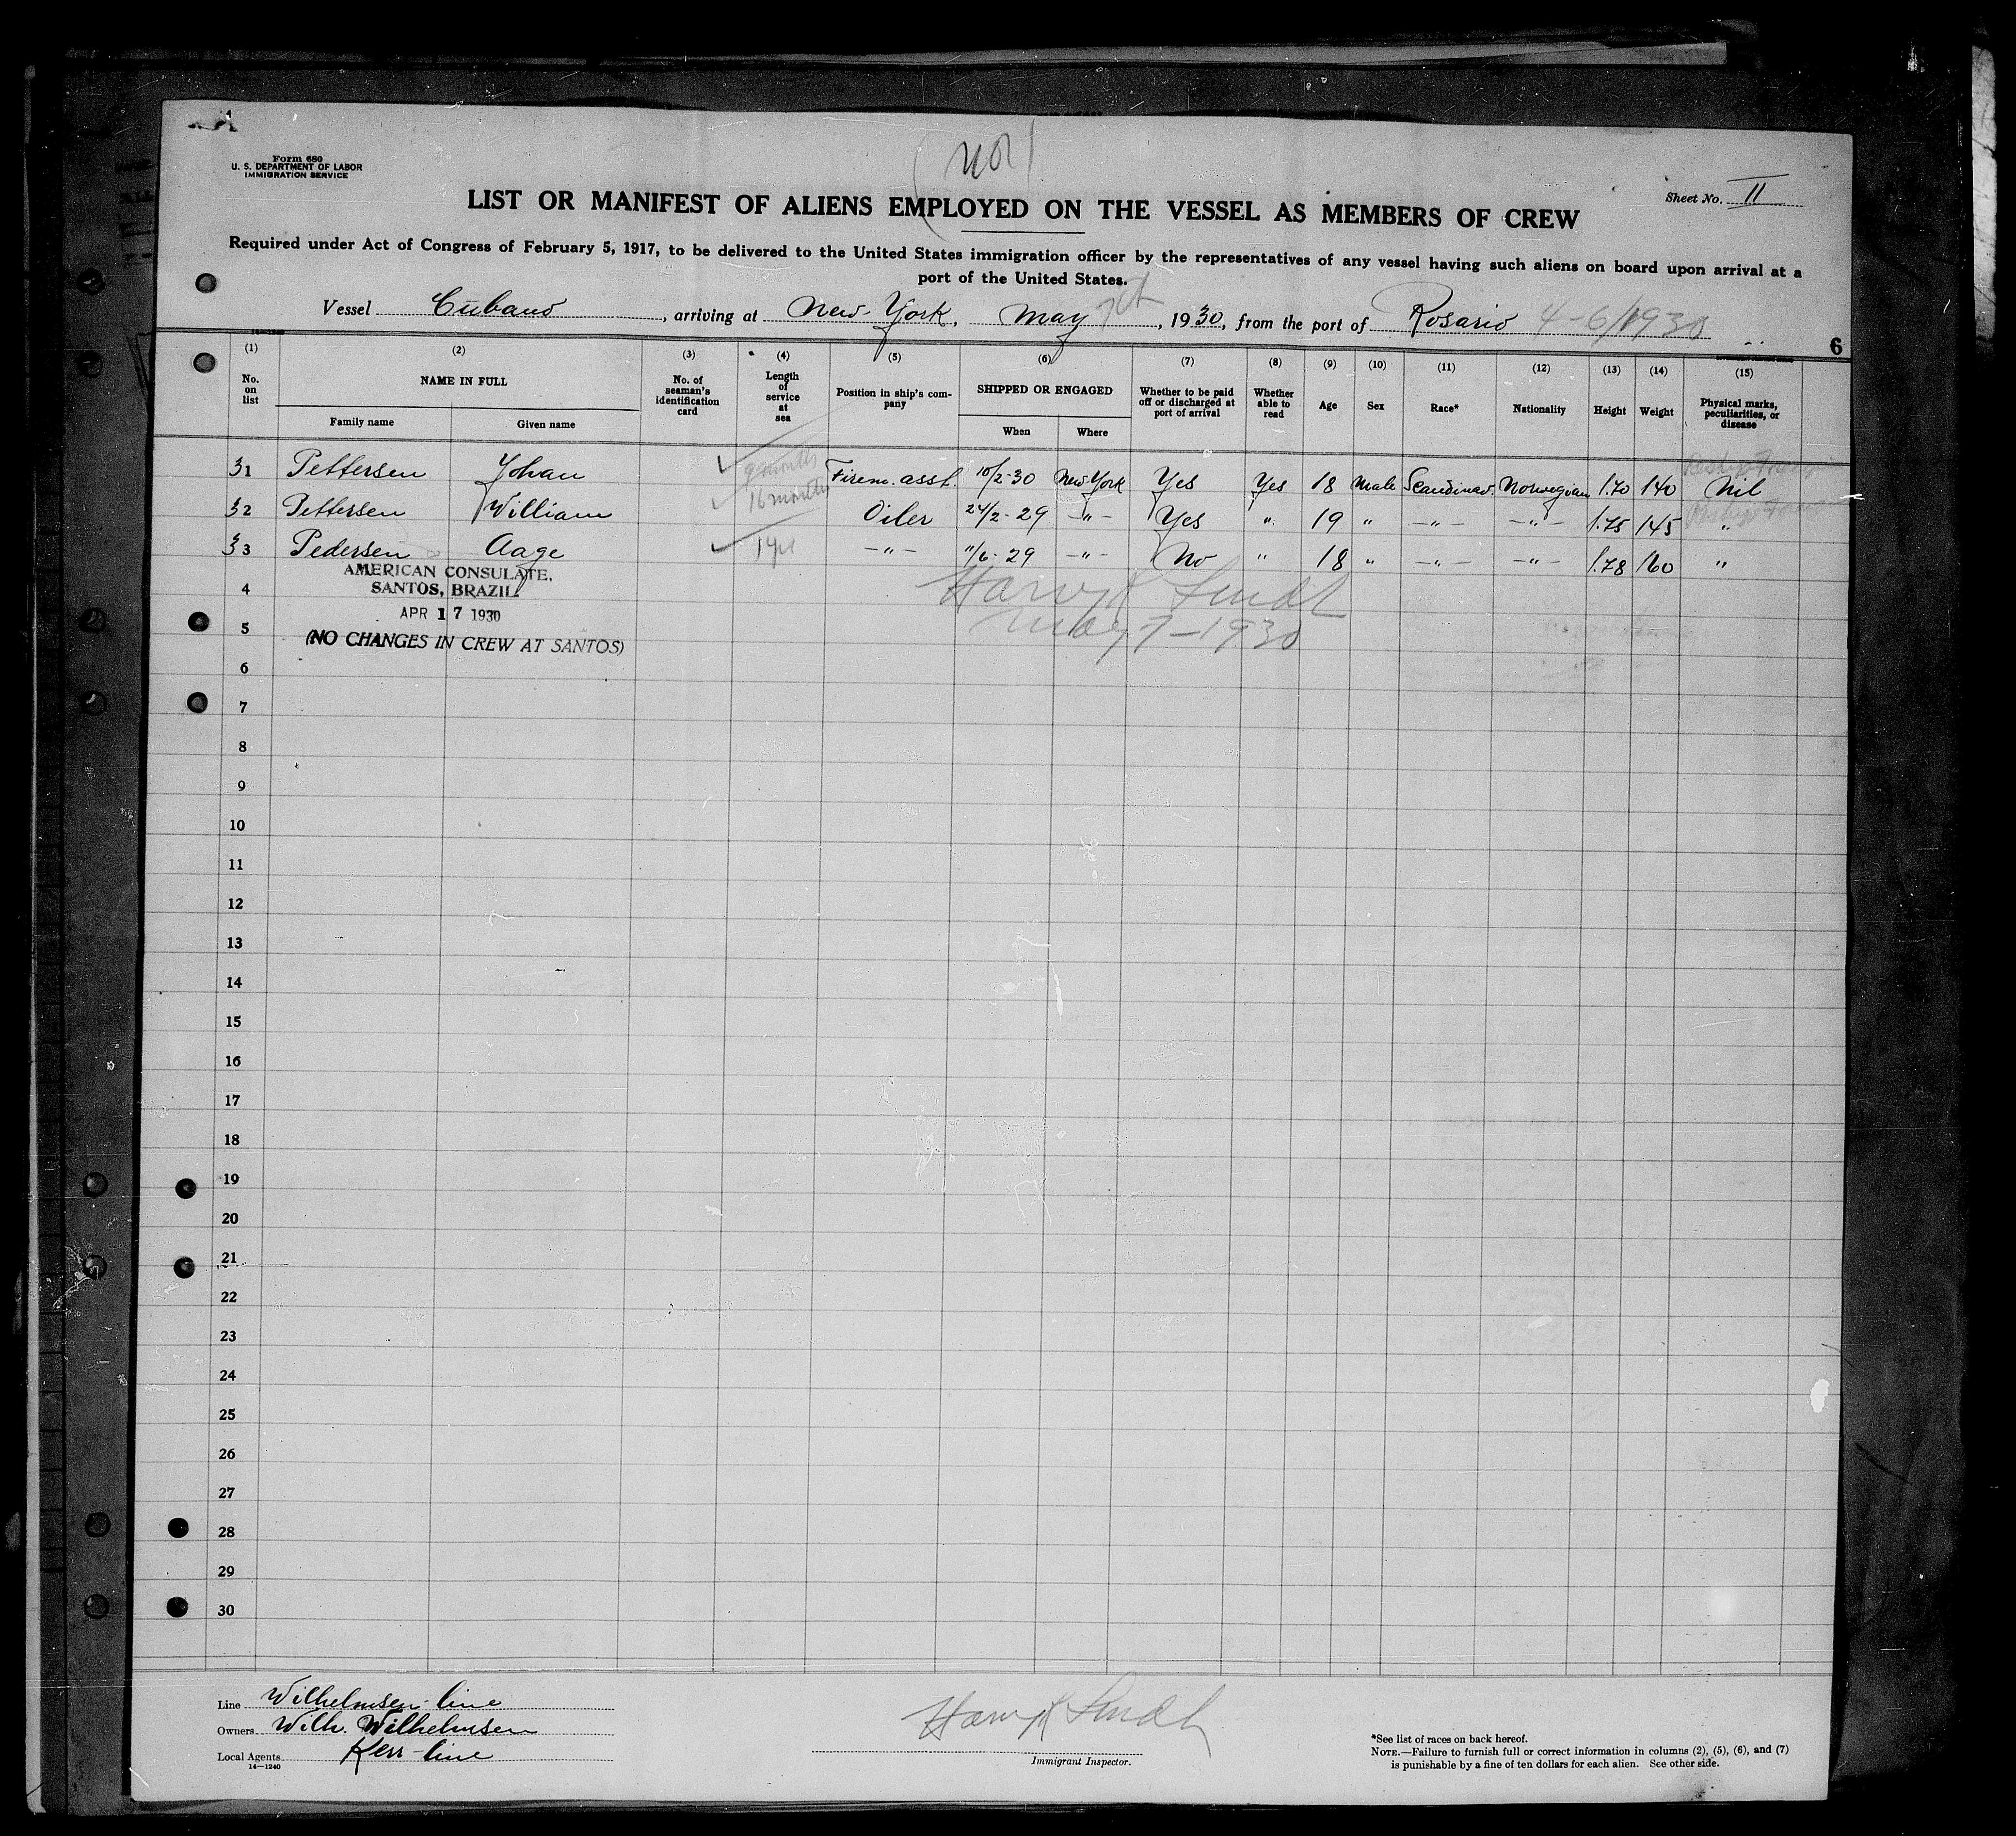 Form 680
U. S. DEPARTMENT OF LABOR
IMMIGRATION SERVICE
Sheet No. II
LIST OR MANIFEST OF ALIENS EMPLOYED ON THE VESSEL AS MEMBERS OF CREW
Required under Act of Congress of February 5, 1917, to be delivered to the United States immigration officer by the representatives of any vessel having such aliens on board upon arrival at a
port of the United States.
Vessel Cubano, arriving at New York, May 7th, 1930, from the port of Rosario 4-6/1930
6
(1) (2) (3) (4) (5) (6) (7) (8) (9) (10) (11) (12) (13) (14) (15)
No. on list NAME IN FULL Family name Given name No. of seaman's identification card Length of service at sea Position in ship's company SHIPPED OR ENGAGED When Where Whether to be paid off or discharged at port of arrival Whether able to read Age Sex Race* Nationality Height Weight Physical marks, peculiarities, or disease
31 Pettersen Johan Firem. asst. 10/2-30 New York Yes Yes 18 Male Scandinav. Norwegian 1.70 140 Nil
32 Pettersen William 16 months Oiler 24/2-29 -"- Yes " 19 " -"- -"- 1.75 145 "
33 Pedersen Aage 1 yr -"- 11/6-29 -"- No " 18 " -"- -"- 1.78 160 "
AMERICAN CONSULATE,
SANTOS, BRAZIL.
APR 17 1930
(NO CHANGES IN CREW AT SANTOS)
May 7-1930
4
5
6
7
8
9
10
11
12
13
14
15
16
17
18
19
20
21
22
23
24
25
26
27
28
29
30
Line Wilhelmsen-line
Owners Wilh. Wilhelmsen
Local Agents Kerr-line
14-1240
Immigrant Inspector.
*See list of races on back hereof.
NOTE.—Failure to furnish full or correct information in columns (2), (5), (6), and (7)
is punishable by a fine of ten dollars for each alien. See other side.